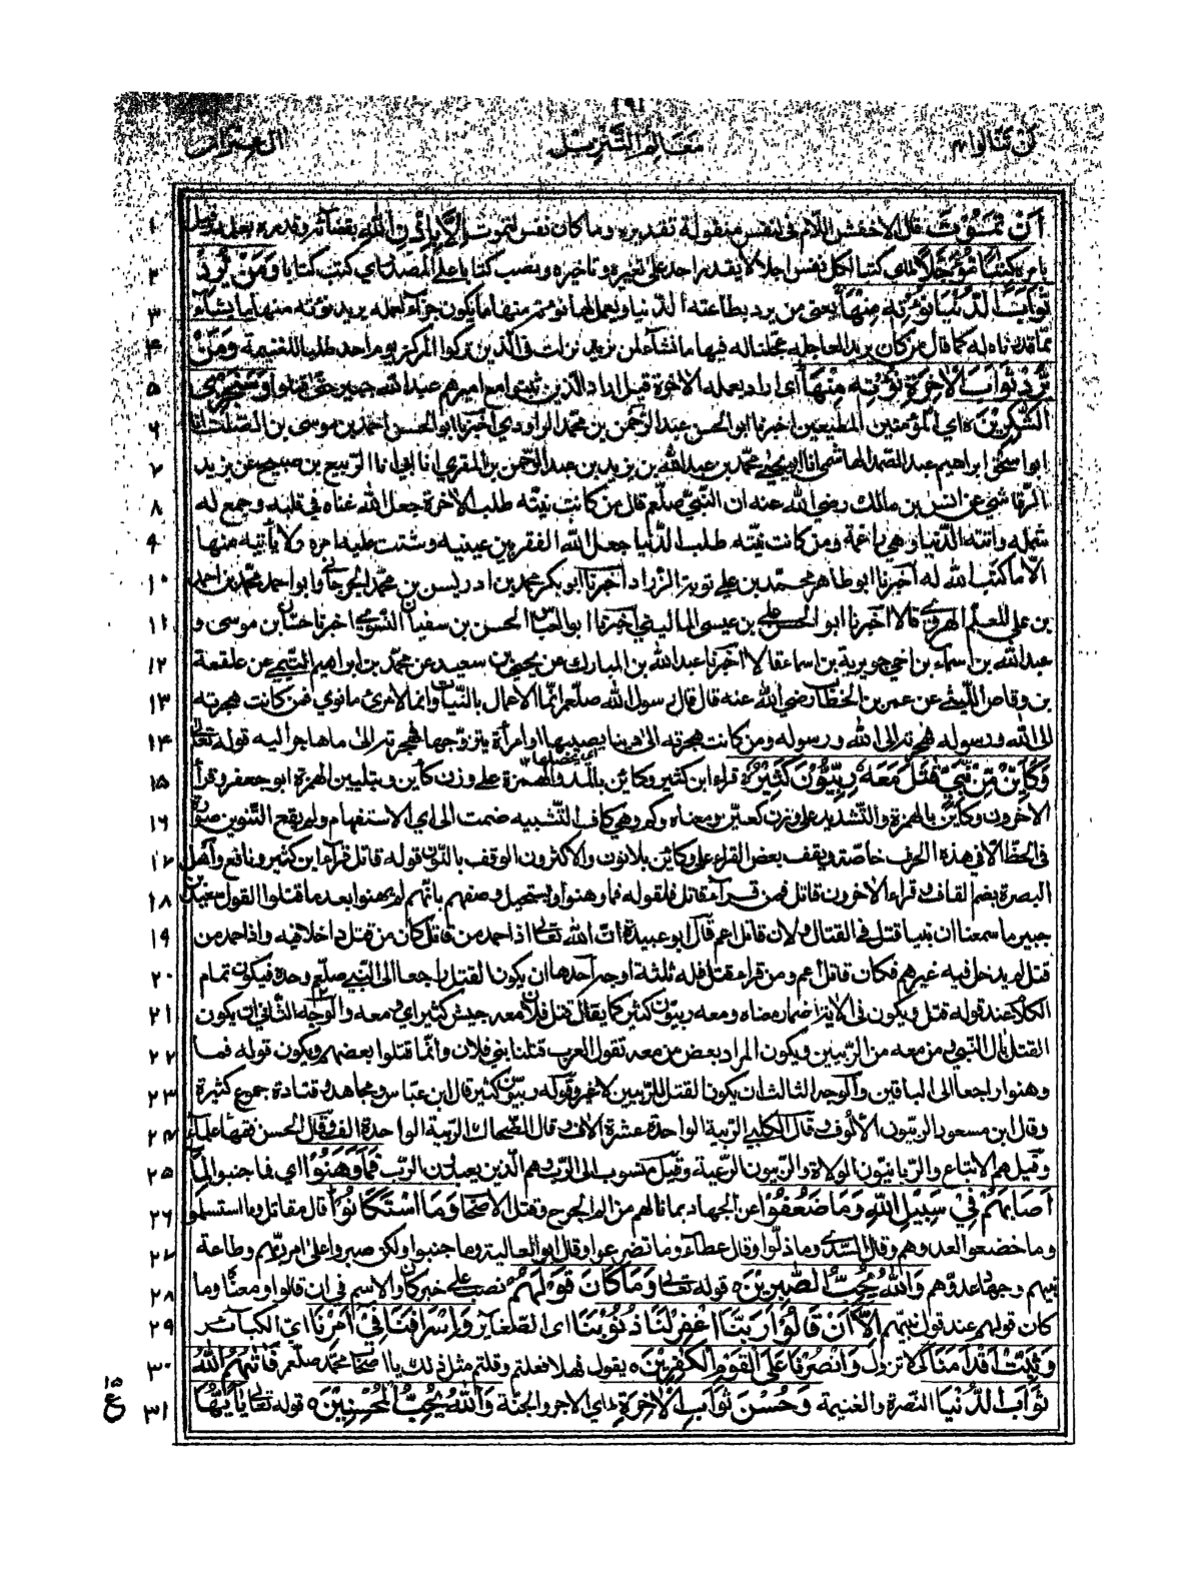 ١٩١
لن تنالوا ٤ معالم التنزيل ال عمران
١ اَنْ تَمُوْتَ قال الاخفش اللام فى لنفس منقولة تقديره وما كان نفس لتموت اِلَّا بِاِذْنِ اللهِ بقضاء الله وقدره بعلمه وقيل
٢ بامره كِتٰبًا مُّؤَجَّلًا اي كتب لكل نفس اجلا لا يقدر احد على تغييره وتاخيره ونصب كتابا على المصدر اي كتب كتابا وَمَنْ يُّرِدْ
٣ ثَوَابَ الدُّنْيَا نُؤْتِهٖ مِنْهَا يعنى من يرد بطاعته الدنيا ويعمل لها نؤته منها ما يكون جزاء لعمله يريد نؤته منها ما يشاء
٤ مما قدرناه له كما قال من كان يريد العاجلة عجلنا له فيها ما نشاء لمن نريد نزلت فى الذين تركوا المركز يوم احد طلبا للغنيمة وَمَنْ
٥ يُّرِدْ ثَوَابَ الْاٰخِرَةِ نُؤْتِهٖ مِنْهَا اى اراد بعمله الاخرة قيل اراد الذين ثبتوا مع اميرهم عبد الله بن جبير حتى قتلوا وَسَنَجْزِي
٦ الشّٰكِرِيْنَ ٥ اي المؤمنين المطيعين اخبرنا ابو الحسن عبد الرحمن بن محمد الداودي اخبرنا ابو الحسن احمد بن موسى بن الصلت انا
٧ ابو اسحق ابراهيم عبد الصمد الهاشمي انا ابو يحيى محمد بن عبد الله بن يزيد بن عبد الرحمن بن المقري انا ابى انا الربيع بن صبيح عن يزيد
٨ الرقاشي عن انس بن مالك رضي الله عنه ان النبي صلعم قال من كانت نيته طلب الاخرة جعل الله غناه في قلبه وجمع له
٩ شمله واتته الدنيا وهي راغمة ومن كانت نيته طلب الدنيا جعل الله الفقر بين عينيه وشتت عليه امره ولا يأتيه منها
١٠ الا ما كتب الله له اخبرنا ابو طاهر محمد بن على بن توبة الزراد اخبرنا ابو بكر محمد بن ادريس بن محمد الجرجاني وابو احمد محمد بن احمد
١١ بن علي المعلم الهروي قالا اخبرنا ابو الحسن علي بن عيسى الماليني اخبرنا ابو العباس الحسن بن سفيان النسوي اخبرنا حبان بن موسى و
١٢ عبد الله بن اسماء بن اخي جويرية بن اسماء قالا اخبرنا عبد الله بن المبارك عن يحيى بن سعيد عن محمد بن ابراهيم التيمي عن علقمة
١٣ بن وقاص الليثي عن عمر بن الخطاب رضي الله عنه قال قال رسول الله صلعم انما الاعمال بالنيات وانما لامرئ ما نوي فمن كانت هجرته
١٤ الى الله ورسوله فهجرته الى الله ورسوله ومن كانت هجرته الى دنيا يصيبها او امرأة يتزوجها فهجرته الى ما هاجر اليه قوله تعالى
١٥ وَكَاَيِّنْ مِّنْ نَّبِيٍّ قٰتَلَ مَعَهٗ رِبِّيُّوْنَ كَثِيْرٌ قراء ابن كثير وكائن بالمد والهمزة على وزن كاعن وبتليين الهمزة ابو جعفر وقرأ
١٦ الاخرون وكاين بالهمزة والتشديد على وزن كعيّن ومعناه وكم وهي كاف التشبيه ضمت الى اي الاستفهام ولم يقع التنوين صورة
١٧ فى الخط الا فى هذه الحرف خاصة ويقف بعض القراء على وكاين بلا نون والاكثرون الوقف بالنون قوله قاتل قرأ ابن كثير ونافع وأهل
١٨ البصرة بضم القاف وقراء الاخرون قاتل فمن قرأ قاتل فلقوله فما وهنوا ويستحيل وصفهم بانهم لم يهنوا بعد ما قتلوا القول سعيد بن
١٩ جبير ما سمعنا ان نبيا قتل فى القتال ولان قاتل اعم قال ابو عبيدة ان الله تعالى اذا حمد من قاتل كان من قتل داخلا فيه واذا حمد من
٢٠ قتل لم يدخل فيه غيرهم فكان قاتل أعم ومن قراء قتل فله ثلثة اوجه احدها ان يكون القتل راجعا الى النبي صلعم وحده فيكون تمام
٢١ الكلام عند قوله قتل ويكون فى الاية اضمار معناه ومعه ربيون كثير كما يقال قتل فلان معه جيش كثير اي ومعه والوجه الثانى ان يكون
٢٢ القتل نال النبي ومن معه من الربيين ويكون المراد بعض من معه تقول العرب قتلنا بنى فلان وانما قتلوا بعضهم ويكون قوله فما
٢٣ وهنوا راجعا الى الباقين والوجه الثالث ان يكون القتل للربيين لا غير وقوله ربيون كثير قال ابن عباس ومجاهد وقتادة جموع كثيرة
٢٤ وقال ابن مسعود الربيون الألوف وقال الكلبي الربية الواحدة عشرة الاف وقال الضحاك الربية الواحدة الف وقال الحسن فقهاء علماء
٢٥ وقيل هم الاتباع والربانيون الولاة والربيون الرعية وقيل منسوب الى الرب وهم الذين يعبدون الرب فَمَا وَهَنُوْا اي فما جنبوا لِمَا
٢٦ اَصَابَهُمْ فِيْ سَبِيْلِ اللهِ وَمَا ضَعُفُوْا عن الجهاد بما نالهم من الم الجرح وقتل الاصحاب وَمَا اسْتَكَانُوْا قال مقاتل وما استسلموا
٢٧ وما خضعوا لعدوهم وقال السدي وما ذلوا وقال عطاء وما تضرعوا وقال ابو العالية وما جنبوا ولكن صبروا على امر ربهم وطاعة
٢٨ نبيهم وجهاد عدوهم وَاللهُ يُحِبُّ الصّٰبِرِيْنَ ٥ قوله تعالى وَمَا كَانَ قَوْلَهُمْ نصب على خبر كان والاسم فى ان قالوا ومعناه وما
٢٩ كان قولهم عند قتل نبيهم اِلَّا اَنْ قَالُوْا رَبَّنَا اغْفِرْ لَنَا ذُنُوْبَنَا اى الصغائر وَاِسْرَافَنَا فِيْ اَمْرِنَا اي الكبائر
٣٠ وَثَبِّتْ اَقْدَامَنَا كى لا تزول وَانْصُرْنَا عَلَى الْقَوْمِ الْكٰفِرِيْنَ ٥ يقول فهلا فعلتم وقلتم مثل ذلك يا اصحاب محمد صلعم فَاٰتٰهُمُ اللهُ
٣١ ثَوَابَ الدُّنْيَا النصرة والغنيمة وَحُسْنَ ثَوَابِ الْاٰخِرَةِ اي الاجر والجنة وَاللهُ يُحِبُّ الْمُحْسِنِيْنَ ٥ قوله تعالى يٰاَيُّهَا
١٥
ع